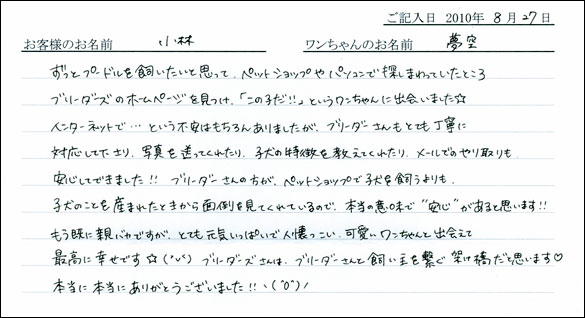 ご記入日 2010年 8月27日
お客様のお名前 小林 ワンちゃんのお名前 夢空
ずっとプードルを飼いたいと思って、ペットショップやパソコンで探しまわっていたところ
ブリーダーズのホームページを見つけ、「この子だ!!」というワンちゃんに出会いました☆
インターネットで…という不安はもちろんありましたが、ブリーダーさんもとても丁寧に
対応して下さり、写真を送ってくれたり、子犬の特徴を教えてくれたり、メールでのやり取りも
安心してできました!! ブリーダーさんの方が、ペットショップで子犬を飼うよりも、
子犬のことを産まれたときから面倒を見てくれているので、本当の意味で"安心"があると思います!!
もう既に親バカですが、とても元気いっぱいで人懐っこい、可愛いワンちゃんと出会えて
最高に幸せです☆(^∨^) ブリーダーズさんは、ブリーダーさんと飼い主を繋ぐ架け橋だと思います♡
本当に本当にありがとうございました!!ヽ(^0^)ノ